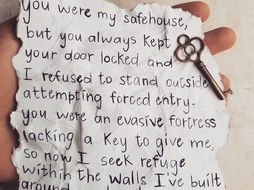 you were my safehouse,
but you always kept
your door locked and
I refused to stand outside
attempting forced entry.
you were an evasive fortress
lacking a key to give me,
so now I seek refuge
within the walls I've built
around